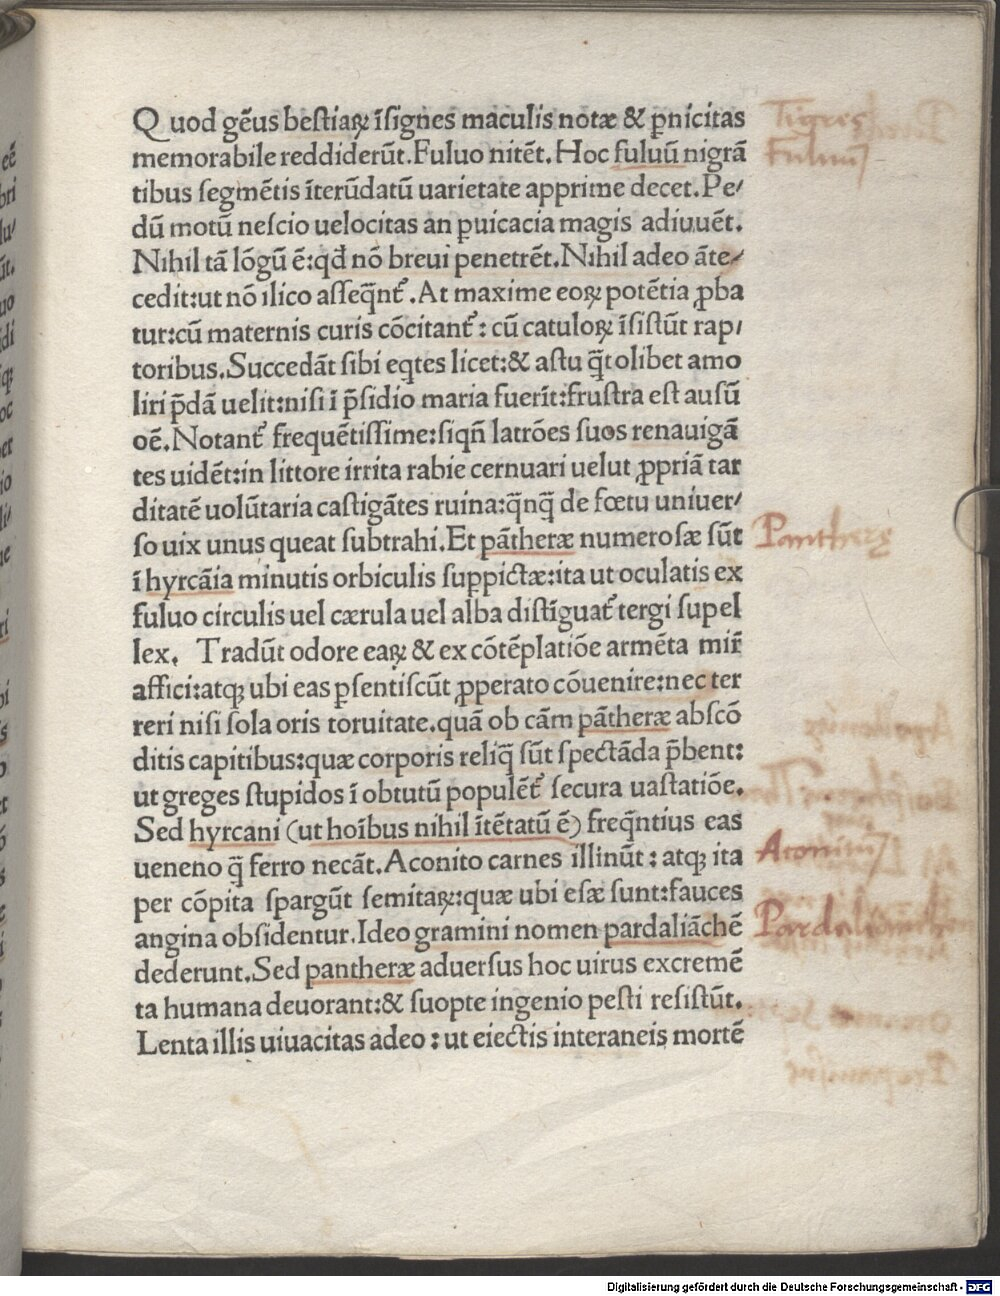 Quod gēus bestiaꝝ īsignes maculis notæ & ꝑnicitas
memorabile reddiderūt. Fuluo nitēt. Hoc fuluū nigrā
tibus segmētis īterūdatū uarietate apprime decet. Pe/
dū motū nescio uelocitas an ꝑuicacia magis adiuuēt.
Nihil tā lōgū ē: qđ nō breui penetrēt. Nihil adeo āte/
cedit: ut nō ilico asseq̄nt᷑. At maxime eoꝝ potētia ꝓba
tur: cū maternis curis cōcitant᷑: cū catuloꝝ īsistūt rap/
toribus. Succedāt sibi eq̇tes licet: & astu q̄tolibet amo
liri p̄dā uelit: nisi ī p̄sidio maria fuerīt: frustra est ausū
oē. Notant᷑ frequētissime: siqn̄ latrōes suos renauigā
tes uidēt: in littore irrita rabie cernuari uelut ꝓpriā tar
ditatē uolūtaria castigātes ruina: q̄nq̄ de fœtu uniuer/
so uix unus queat subtrahi. Et pātheræ numerosæ sūt
ī hyrcāia minutis orbiculis suppictæ: ita ut oculatis ex
fuluo circulis uel cærula uel alba distīguat᷑ tergi supel
lex. Tradūt odore eaꝝ & ex cōtēplatiōe armēta mir̄
affici: atqꝫ ubi eas ꝑsentiscūt ꝓperato cōuenire: nec ter
reri nisi sola oris toruitate. quā ob cām pātheræ abscō
ditis capitibus: quæ corporis reliq̄ sūt spectāda p̄bent:
ut greges stupidos ī obtutū populēt᷑ secura uastatiōe.
Sed hyrcani (ut hoībus nihil ītētatū ē) freq̄ntius eas
ueneno q̄ ferro necāt. Aconito carnes illinūt: atqꝫ ita
per cōpita spargūt semitaꝝ: quæ ubi esæ sunt: fauces
angina obsidentur. Ideo gramini nomen pardaliāchē
dederunt. Sed pantheræ aduersus hoc uirus excremē
ta humana deuorant: & suopte ingenio pesti resistūt.
Lenta illis uiuacitas adeo: ut eiectis interaneis mortē
Tigres
Fuluum
Pantherę
Aconitū
Digitalisierung gefördert durch die Deutsche Forschungsgemeinschaft - DFG